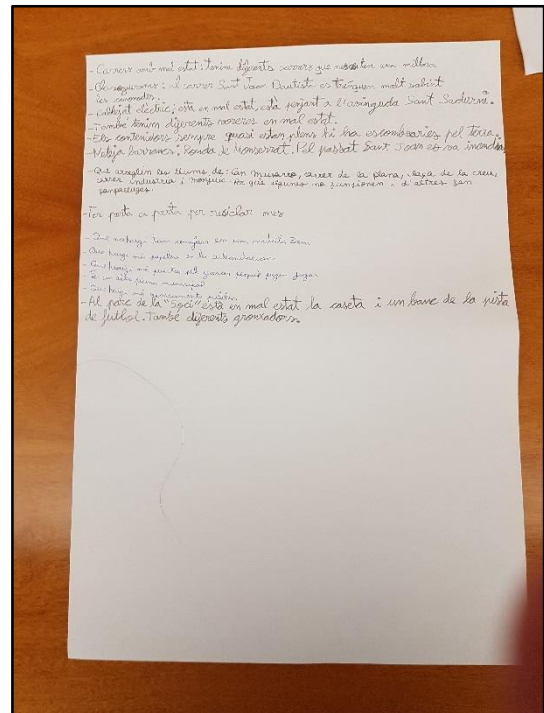 - Carrers amb mal estat: tenim diferents carrers que necesiten una millora
- Clavegueram: al carrer Sant Joan Bautista es trenquen molt sobint
les canonades.
- Cablejat elèctric; està en mal estat, està penjant a l'avinguda Sant Sadurní.
- També tenim diferents voreres en mal estat.
- Els contenidors sempre quasi estan plens hi ha escombraries pel terra.
- Neteja barrancs: Ronda de Monserrat. Pel passat Sant Joan es va incendiar
- Que arreglen les llums de: Can Musarro, carrer de la plana, plaça de la creu,
carrer industria i monjuic. Per què algunes no funsionen i d'altres fan
pampallugues.
- Fer porta a porta per resiclar mes
- Que hi hagi més papeleres en la urbanización
- Que hagi més
- Al parc de la "Soci" està en mal estat la caseta i un banc de la pista
de futbol. També diferents gronxadors.